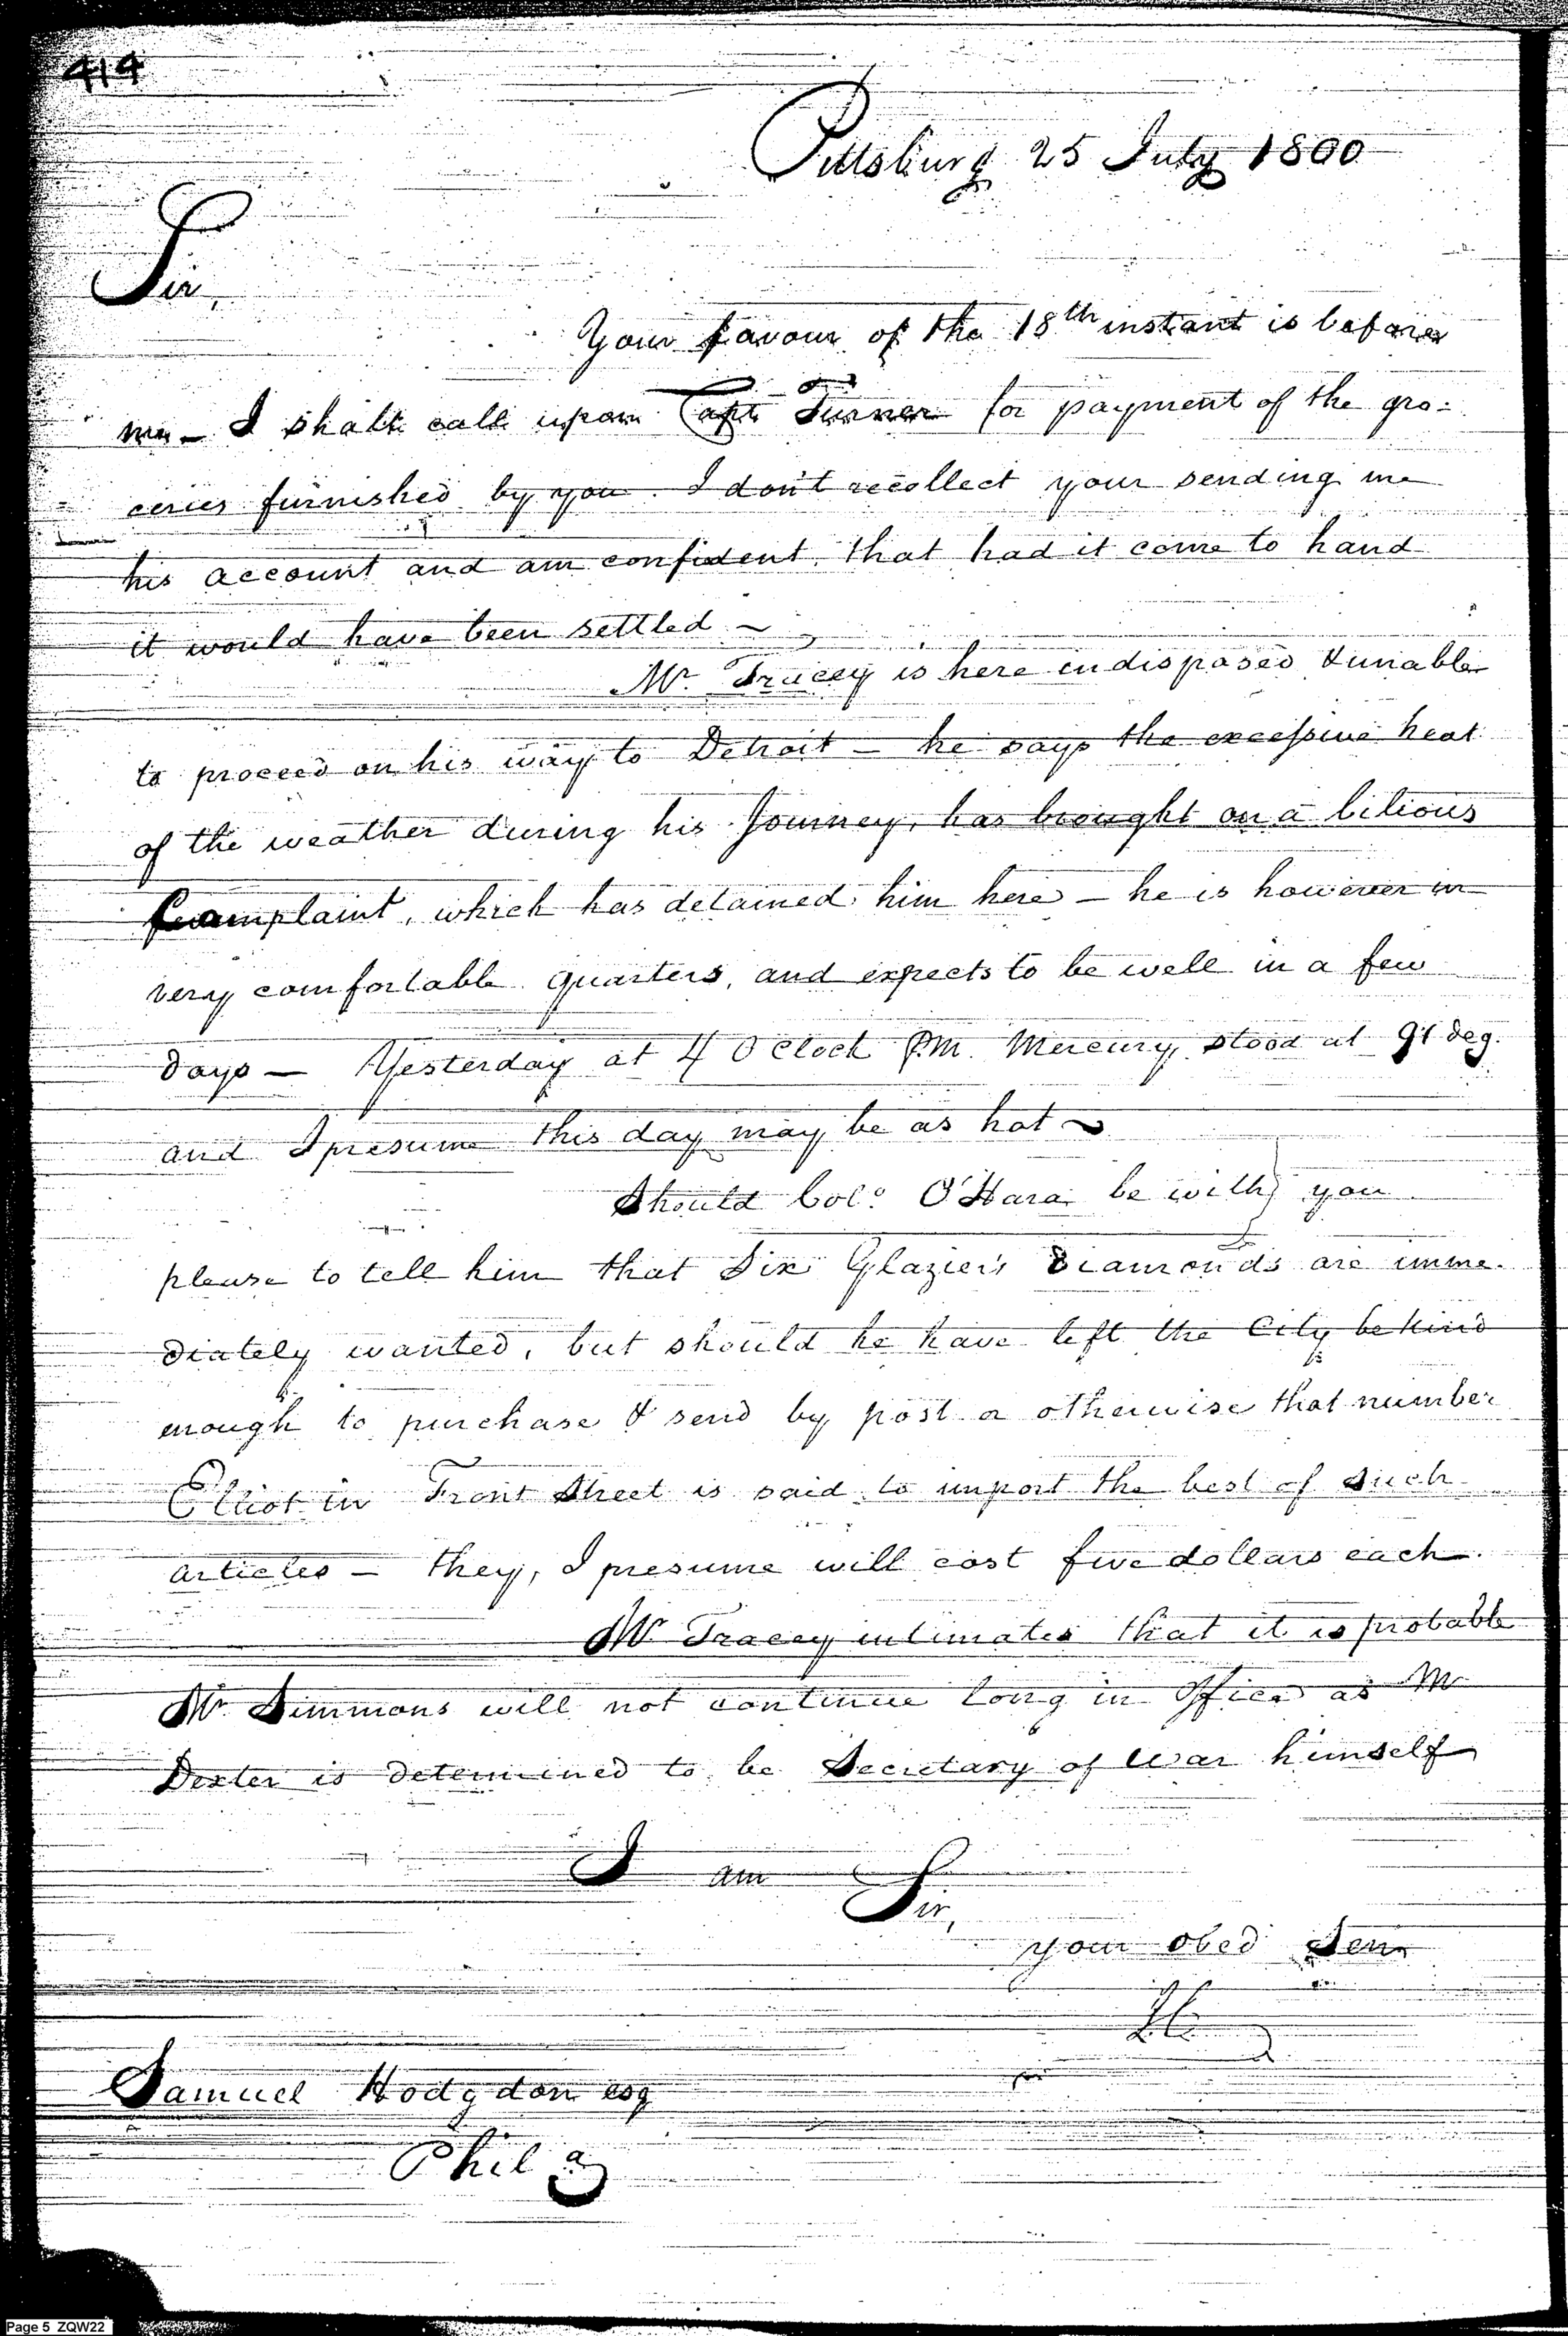 414
Pittsburg 25 July 1800
Sir,
Your favour of the 18th instant is before
me - I shall call upon Capt Turner for payment of the gro=
ceries furnished by you. I don't recollect your sending me
his account and am confident, that had it come to hand
it would have been settled ~
Mr Tracey is here indisposed & unable
to proceed on his way to Detroit - he says the excessive heat
of the weather during his Journey, has brought on a bilious
Complaint, which has detained him here - he is however in
very comfortable quarters, and expects to be well in a few
days - Yesterday at 4 O Clock P.M. Mercury stood at 91 deg.
and I presume this day may be as hot ~
Should Colo. O'Hara be with you
please to tell him that Six Glazier's Diamonds are imme-
diately wanted, but should he have left the City be kind
enough to purchase & send by post or otherwise that number
Elliot in Front Street is said to import the best of such
articles - they, I presume will cost five dollars each.
Mr Tracey intimates that it is probable
Mr Simmons will not continue long in Office as Mr
Dexter is determined to be Secretary of War himself
I am Sir,
your obed Serv
Samuel Hodgdon esq
Phila
Page 5 ZQW22